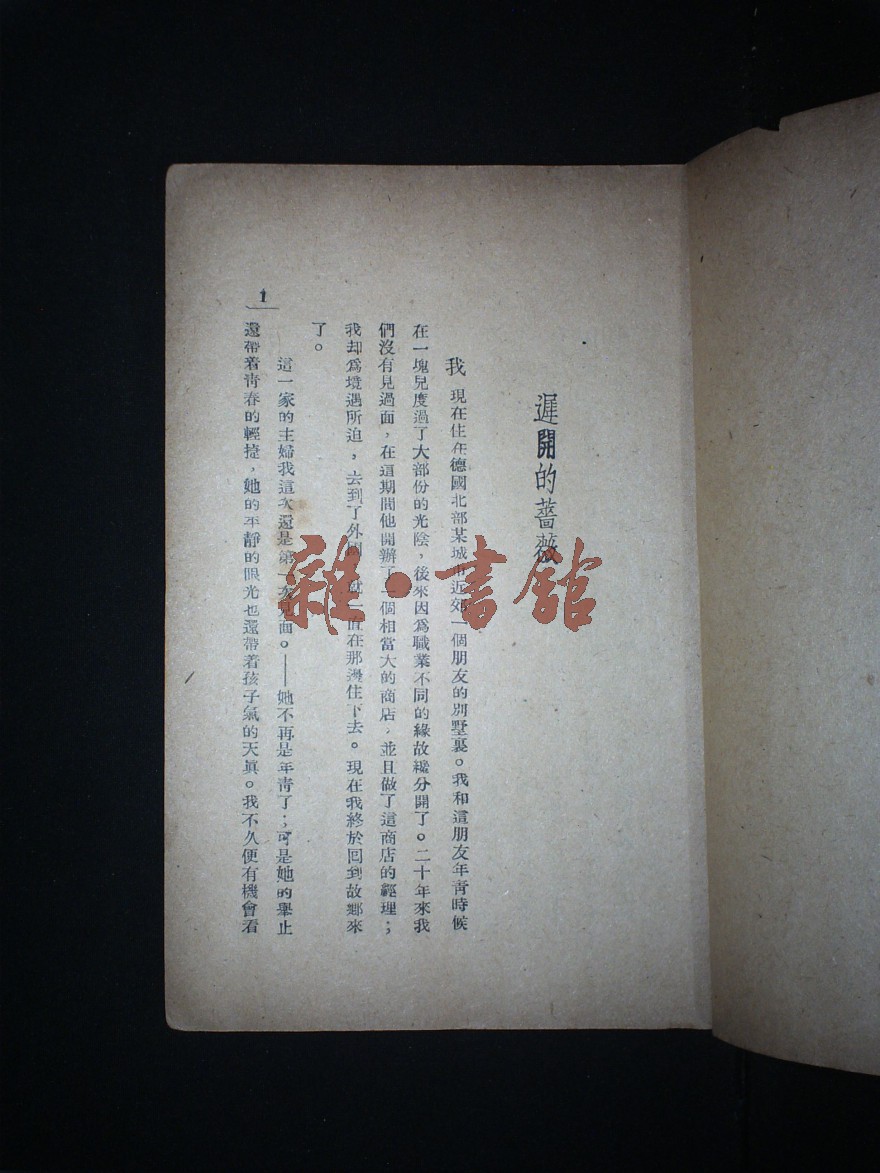 遲開的薔薇
我現在住在德國北部某城市近郊一個朋友的別墅裏。我和這朋友年青時候
在一塊兒度過了大部份的光陰，後來因爲職業不同的緣故纔分開了。二十年來我
們沒有見過面，在這期間他開辦了一個相當大的商店，並且做了這商店的經理；
我却爲境遇所迫，去到了外國，就一直在那邊住下去。現在我終於回到故鄉來
了。
這一家的主婦我這次還是第一次見面。——她不再是年青了；可是她的舉止
還帶着青春的輕捷，她的平靜的眼光也還帶着孩子氣的天眞。我不久便有機會看
1
雜·書館